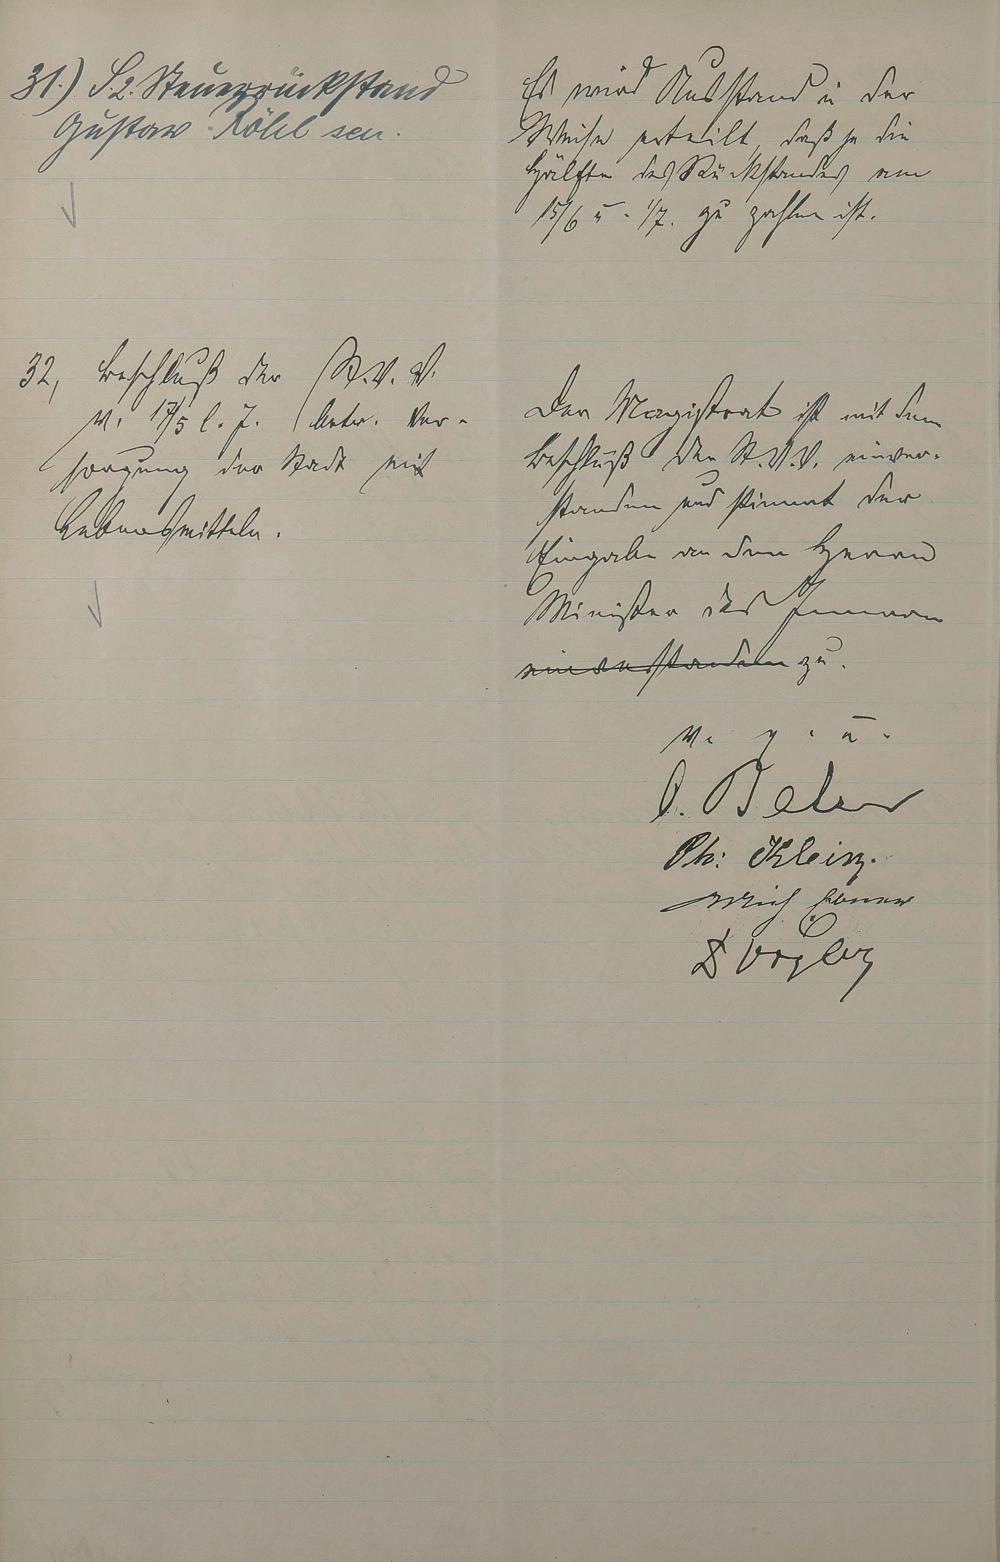 31.) S2. Steuerrückstand
Gustav Röhl sen.
Es wird Ausstand in der
Weise erteilt, daß je die
Hälfte des Rückstandes am
15/6 u. 1/7. zu zahlen ist.
32, Beschluß der St.V.V.
v. 17/5 l. J. betr. Ver-
sorgung der Stadt mit
Lebensmitteln.
Der Magistrat ist mit dem
Beschluß der St.V.V. einver-
standen und stimmt der
Eingabe an den Herrn
Minister des Innern
einverstanden zu.
v. g. u.
Ph: Klein.